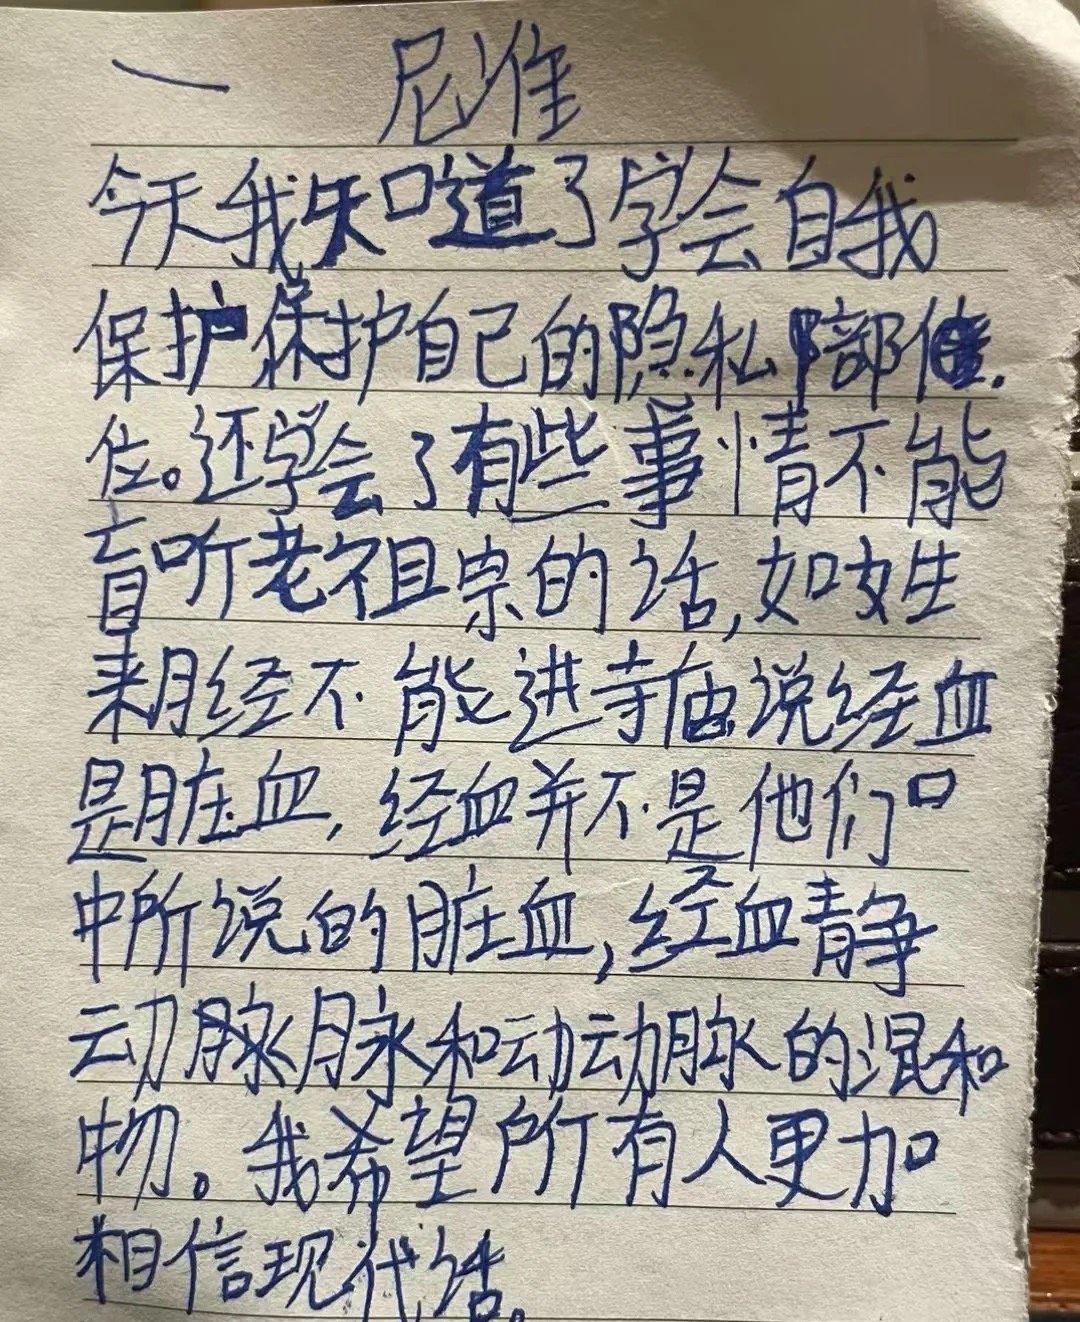 一 尼准
今天我知道了学会自我
保护保护自己的隐私部
位。还学会了有些事情不能
盲听老祖宗的话,如女生
来月经不能进寺庙说经血
是脏血,经血并不是他们口
中所说的脏血,经血静
动脉脉和动动脉的混和
物。我希望所有人更加
相信现代话。